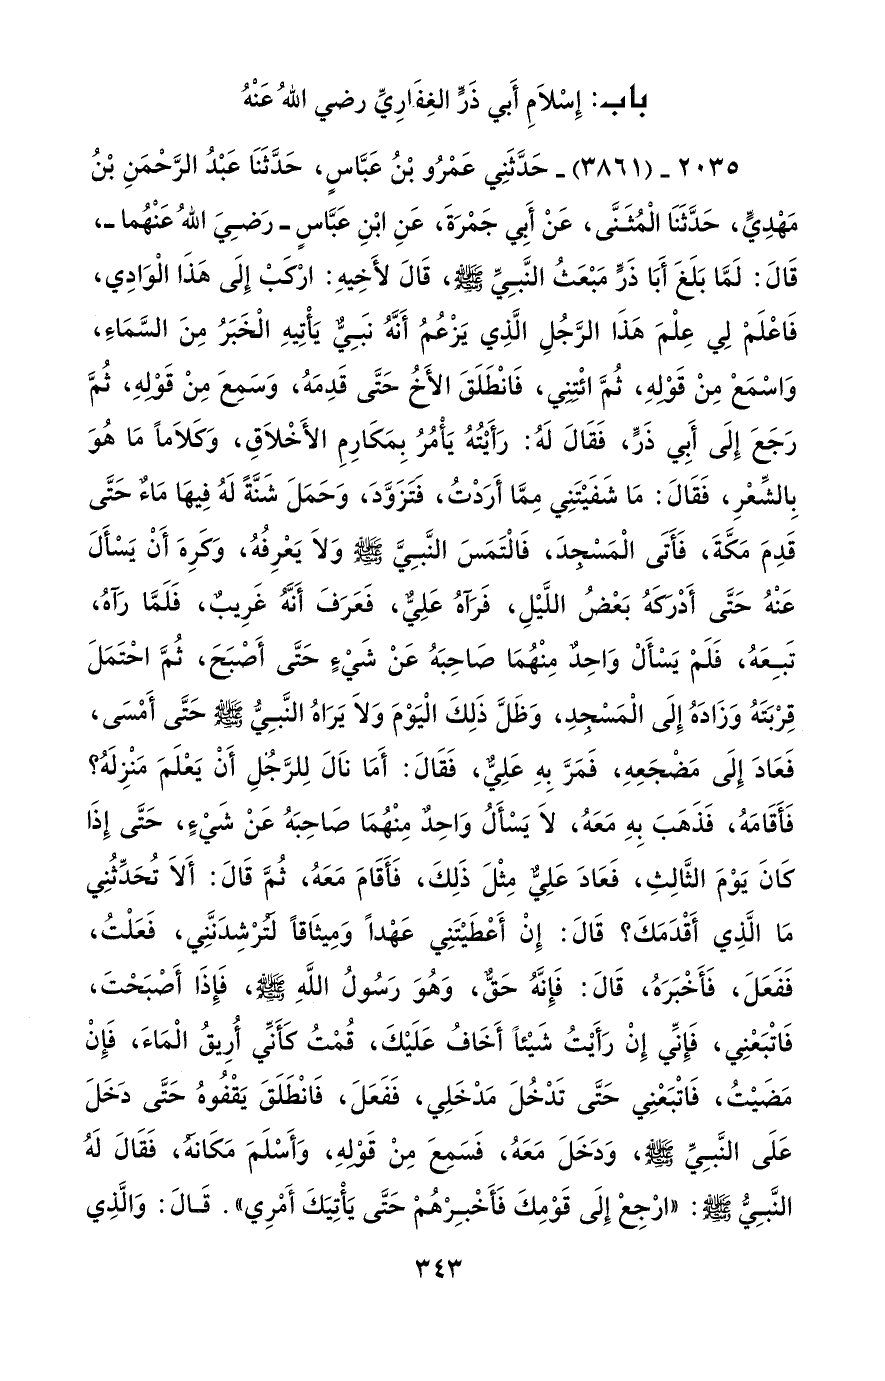 باب: إِسْلاَمِ أَبي ذَرٍّ الغِفَارِيِّ رضي اللهُ عَنْهُ
٢٠٣٥ ـ (٣٨٦١) ـ حَدَّثَنِي عَمْرُو بْنُ عَبَّاسٍ، حَدَّثَنَا عَبْدُ الرَّحْمَنِ بْنُ
مَهْدِيٍّ، حَدَّثَنَا الْمُثَنَّى، عَنْ أَبِي جَمْرَةَ، عَنِ ابْنِ عَبَّاسٍ ـ رَضِيَ اللهُ عَنْهُما ـ،
قَالَ: لَمَّا بَلَغَ أَبَا ذَرٍّ مَبْعَثُ النَّبِيِّ ﷺ، قَالَ لأَخِيهِ: ارْكَبْ إِلَى هَذَا الْوَادِي،
فَاعْلَمْ لِي عِلْمَ هَذَا الرَّجُلِ الَّذِي يَزْعُمُ أَنَّهُ نَبِيٌّ يَأْتِيهِ الْخَبَرُ مِنَ السَّمَاءِ،
وَاسْمَعْ مِنْ قَوْلِهِ، ثُمَّ ائْتِنِي، فَانْطَلَقَ الأَخُ حَتَّى قَدِمَهُ، وَسَمِعَ مِنْ قَوْلِهِ، ثُمَّ
رَجَعَ إِلَى أَبِي ذَرٍّ، فَقَالَ لَهُ: رَأَيْتُهُ يَأْمُرُ بِمَكَارِمِ الأَخْلاَقِ، وَكَلاَماً مَا هُوَ
بِالشِّعْرِ، فَقَالَ: مَا شَفَيْتَنِي مِمَّا أَرَدْتُ، فَتَزَوَّدَ، وَحَمَلَ شَنَّةً لَهُ فِيهَا مَاءٌ حَتَّى
قَدِمَ مَكَّةَ، فَأَتَى الْمَسْجِدَ، فَالْتَمَسَ النَّبِيَّ ﷺ وَلاَ يَعْرِفُهُ، وَكَرِهَ أَنْ يَسْأَلَ
عَنْهُ حَتَّى أَدْرَكَهُ بَعْضُ اللَّيْلِ، فَرَآهُ عَلِيٌّ، فَعَرَفَ أَنَّهُ غَرِيبٌ، فَلَمَّا رَآهُ،
تَبِعَهُ، فَلَمْ يَسْأَلْ وَاحِدٌ مِنْهُمَا صَاحِبَهُ عَنْ شَيْءٍ حَتَّى أَصْبَحَ، ثُمَّ احْتَمَلَ
قِرْبَتَهُ وَزَادَهُ إِلَى الْمَسْجِدِ، وَظَلَّ ذَلِكَ الْيَوْمَ وَلاَ يَرَاهُ النَّبِيُّ ﷺ حَتَّى أَمْسَى،
فَعَادَ إِلَى مَضْجَعِهِ، فَمَرَّ بِهِ عَلِيٌّ، فَقَالَ: أَمَا نَالَ لِلرَّجُلِ أَنْ يَعْلَمَ مَنْزِلَهُ؟
فَأَقَامَهُ، فَذَهَبَ بِهِ مَعَهُ، لاَ يَسْأَلُ وَاحِدٌ مِنْهُمَا صَاحِبَهُ عَنْ شَيْءٍ، حَتَّى إِذَا
كَانَ يَوْمَ الثَّالِثِ، فَعَادَ عَلِيٌّ مِثْلَ ذَلِكَ، فَأَقَامَ مَعَهُ، ثُمَّ قَالَ: أَلاَ تُحَدِّثُنِي
مَا الَّذِي أَقْدَمَكَ؟ قَالَ: إِنْ أَعْطَيْتَنِي عَهْداً وَمِيثَاقاً لَتُرْشِدَنَّنِي، فَعَلْتُ،
فَفَعَلَ، فَأَخْبَرَهُ، قَالَ: فَإِنَّهُ حَقٌّ، وَهُوَ رَسُولُ اللَّهِ ﷺ، فَإِذَا أَصْبَحْتَ،
فَاتْبَعْنِي، فَإِنِّي إِنْ رَأَيْتُ شَيْئاً أَخَافُ عَلَيْكَ، قُمْتُ كَأَنِّي أُرِيقُ الْمَاءَ، فَإِنْ
مَضَيْتُ، فَاتْبَعْنِي حَتَّى تَدْخُلَ مَدْخَلِي، فَفَعَلَ، فَانْطَلَقَ يَقْفُوهُ حَتَّى دَخَلَ
عَلَى النَّبِيِّ ﷺ، وَدَخَلَ مَعَهُ، فَسَمِعَ مِنْ قَوْلِهِ، وَأَسْلَمَ مَكَانَهُ، فَقَالَ لَهُ
النَّبِيُّ ﷺ: «ارْجِعْ إِلَى قَوْمِكَ فَأَخْبِرْهُمْ حَتَّى يَأْتِيَكَ أَمْرِي». قَالَ: وَالَّذِي
٣٤٣